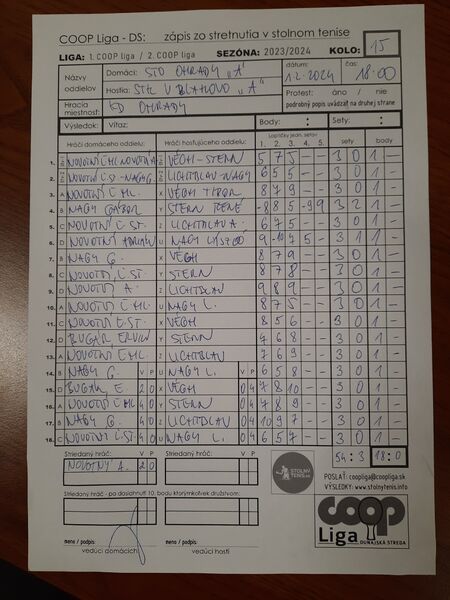 COOP Liga - DS: zápis zo stretnutia v stolnom tenise
LIGA: 1. COOP liga / 2. COOP liga SEZÓNA: 2023/2024 KOLO: 15
Názvy oddielov Domáci: STO OHRADY "A" dátum: 1.2.2024 čas: 18:00
Hostia: "A" Protest: áno / nie
Hracia miestnosť: KD OHRADY podrobný popis uvádzať na druhej strane
Výsledok: Víťaz: Body: : Sety: :
Hráči domáceho oddielu: Hráči hosťujúceho oddielu: Loptičky jedn. setov 1. 2. 3. 4. 5. sety body
1. VÉGH - STERN 5 7 5 - - 3 0 1 -
2. LICHTBLAU - NAGY 6 5 5 - - 3 0 1 -
3. A NOVOTNÝ Ľ ML. Y VÉGH TIBOR 8 7 9 - - 3 0 1 -
4. B NAGY GÁBOR X STERN RENÉ -8 8 5 -9 9 3 2 1 -
5. C NOVOTNÝ Ľ ST. Z LICHTBLAU 6 7 5 - - 3 0 1 -
6. D NOVOTNÝ ADRIÁN U NAGY 3 1 1 -
7. B NAGY G. X VÉGH 8 7 9 - - 3 0 1 -
8. C NOVOTNÝ Ľ ST. Y STERN 8 7 8 - - 3 0 1 -
9. D NOVOTNÝ A. Z LICHTBLAU 9 8 9 - - 3 0 1 -
10. A NOVOTNÝ Ľ ML. U NAGY L. 8 7 5 - - 3 0 1 -
11. C NOVOTNÝ Ľ ST. X VÉGH 8 5 6 - - 3 0 1 -
12. D BUGÁR ERVIN Y STERN 7 6 8 - - 3 0 1 -
13. A NOVOTNÝ Ľ ML. Z LICHTBLAU 7 6 9 - - 3 0 1 -
14. B NAGY G. V P U NAGY L. V P 6 5 8 - - 3 0 1 -
15. D BUGÁR E. 2 0 X VÉGH 0 4 7 8 10 - - 3 0 1 -
16. A NOVOTNÝ Ľ ML 4 0 Y STERN 0 4 7 8 9 - - 3 0 1 -
17. B NAGY G. 4 0 Z LICHTBLAU 0 4 10 9 7 - - 3 0 1 -
18. C NOVOTNÝ Ľ ST. 4 0 U NAGY L. 0 4 6 5 7 - - 3 0 1 -
Striedaný hráč: V P Striedaný hráč: V P 54 : 3 18 : 0
NOVOTNÝ A. 2 0
STOLNÝ TENIS.SK
POSLAŤ: coopliga@coopliga.sk
VÝSLEDKY: www.stolnytenis.info
Striedaný hráč: - po dosiahnutí 10. bodu ktorýmkoľvek družstvom:
coop
Liga DUNAJSKÁ STREDA
meno / podpis: meno / podpis:
vedúci domácich vedúci hostí